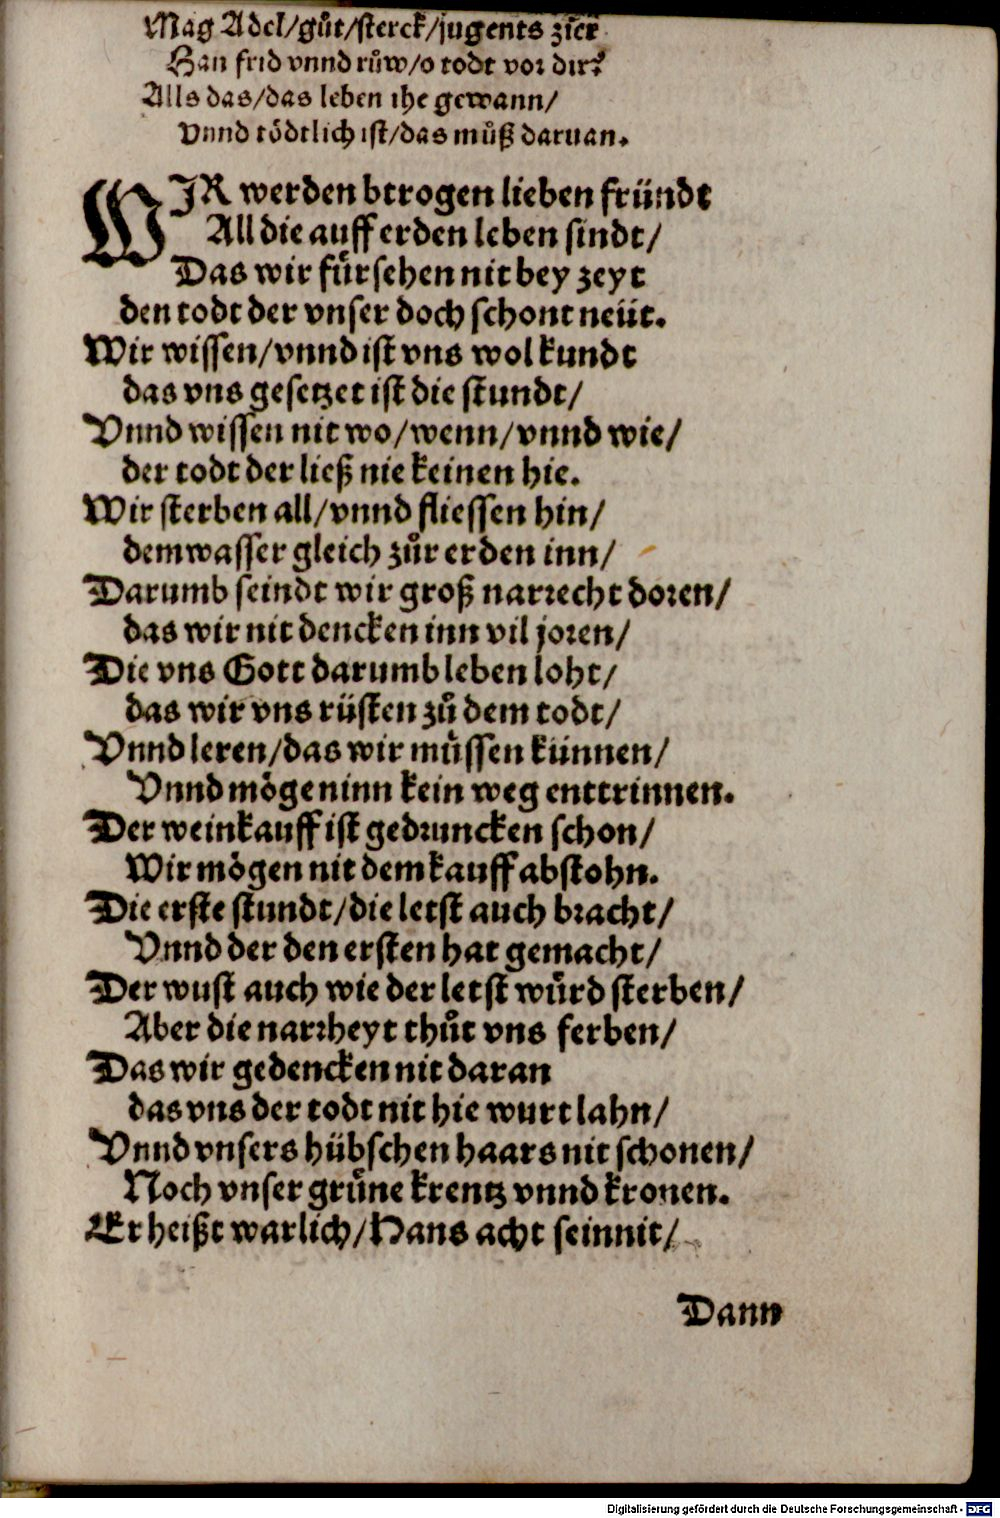 Mag Adel/gůt/sterck/jugents zier
Han frid vnnd růw/o todt vor dir?
Alls das/das leben ihe gewann/
Vnnd tödtlich ist/das můß daruan.
WIR werden btrogen lieben fründt
All die auff erden leben sindt/
Das wir fürsehen nit bey zeyt
den todt der vnser doch schont neüt.
Wir wissen/vnnd ist vns wol kundt
das vns gesetzet ist die stundt/
Vnnd wissen nit wo/wenn/vnnd wie/
der todt der ließ nie keinen hie.
Wir sterben all/vnnd fliessen hin/
dem wasser gleich zůr erden inn/
Darumb seindt wir groß narrecht doren/
das wir nit dencken inn vil joren/
Die vns Gott darumb leben loht/
das wir vns rüsten zů dem todt/
Vnnd leren/das wir müssen künnen/
Vnnd mögen inn kein weg enttrinnen.
Der weinkauff ist gedruncken schon/
Wir mögen nit dem kauff abstohn.
Die erste stundt/die letst auch bracht/
Vnnd der den ersten hat gemacht/
Der wust auch wie der letst würd sterben/
Aber die narrheyt thůt vns ferben/
Das wir gedencken nit daran
das vns der todt nit hie wurt lahn/
Vnnd vnsers hübschen haars nit schonen/
Noch vnser grüne krentz vnnd kronen.
Er heißt warlich/Hans acht sein nit/
Dann
Digitalisierung gefördert durch die Deutsche Forschungsgemeinschaft - DFG